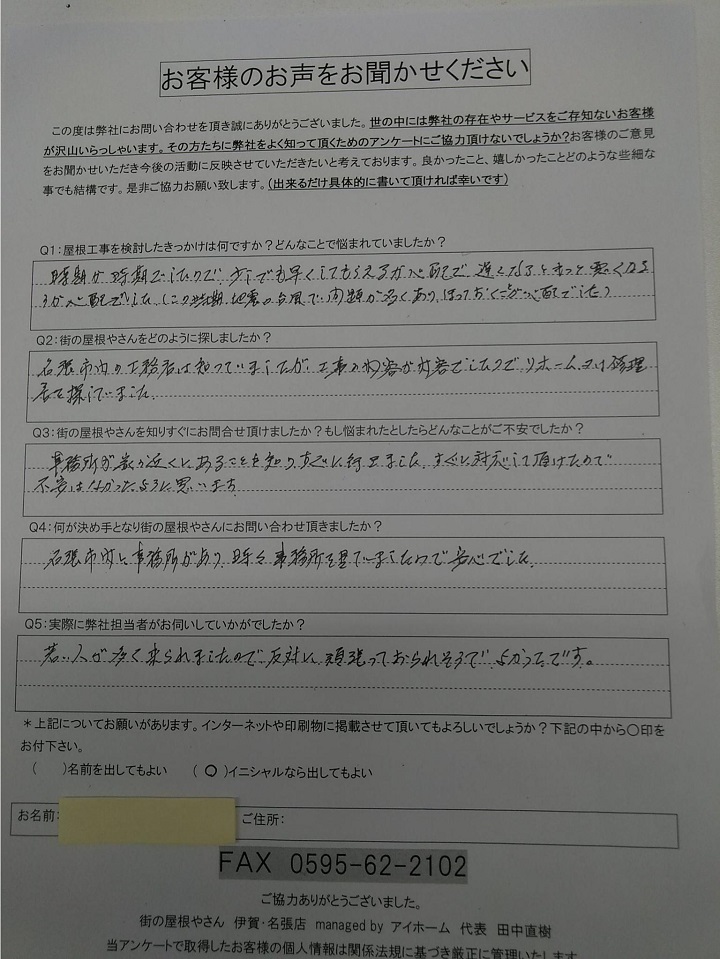 お客様のお声をお聞かせください
この度は弊社にお問い合わせを頂き誠にありがとうございました。世の中には弊社の存在やサービスをご存知ないお客様
が沢山いらっしゃいます。その方たちに弊社をよく知って頂くためのアンケートにご協力頂けないでしょうか？お客様のご意見
をお聞かせいただき今後の活動に反映させていただきたいと考えております。良かったこと、嬉しかったことどのような些細な
事でも結構です。是非ご協力お願い致します。（出来るだけ具体的に書いて頂ければ幸いです）
Q1：屋根工事を検討したきっかけは何ですか？どんなことで悩まれていましたか？
時期が時期でしたので、少しでも早くしてもらえるか心配で、遅くなるともっと悪くなる
か心配でした (この時期、地震や台風で、問題が多くあり、ほっておくことが心配でした)
Q2：街の屋根やさんをどのように探しましたか？
名張市内の工務店は知っていましたが、工事の内容が内容でしたので、リホーム 修理
店を探していました。
Q3：街の屋根やさんを知りすぐにお問合せ頂けましたか？もし悩まれたとしたらどんなことがご不安でしたか？
事務所が 近くにあることを知り、すぐに行きました。すぐに対応して頂けたので
不安はなかったように思います。
Q4：何が決め手となり街の屋根やさんにお問い合わせ頂きましたか？
名張市内に事務所があり、時々事務所を見ていましたので安心でした。
Q5：実際に弊社担当者がお伺いしていかがでしたか？
若い人が多く来られましたので、反対に、頑張っておられそうで、よかったです。
＊上記についてお願いがあります。インターネットや印刷物に掲載させて頂いてもよろしいでしょうか？下記の中から○印を
お付け下さい。
（　　）名前を出してもよい　　（ ○ ）イニシャルなら出してもよい
お名前：　　ご住所：
FAX 0595-62-2102
ご協力ありがとうございました。
街の屋根やさん　伊賀・名張店　managed by アイホーム　代表　田中直樹
当アンケートで取得したお客様の個人情報は関係法規に基づき厳正に管理いたします